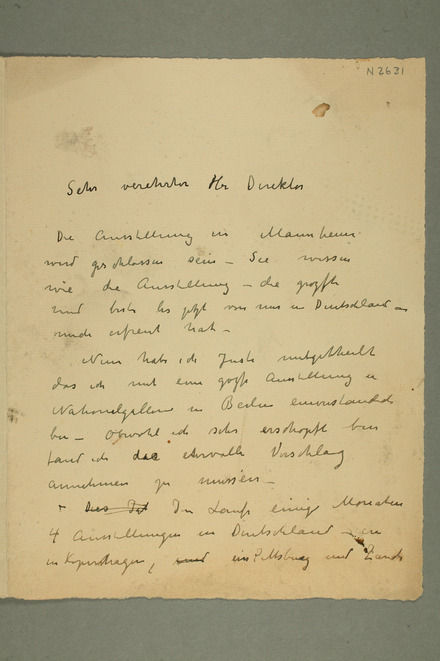 N 2631
Sehr verehrter Her Direktor
Die Ausstellung in Mannheim
wird geschlossen sein – Sie wissen
wie die Ausstellung – die große
und beste bis jetzt von mir in Deutschland –
mich erfreut hat –
Nun hab ich Justi mitgetheilt
das ich mit eine große Ausstellung in
Nationalgallerie in Berlin einverstanden
bin – obwohl ich sehr erschöpft bin
fand ich das ehrenvolle Vorschlag
annehmen zu müssen –
Das Ist In Laufe einige Monaten
4 Ausstellungen in Deutschland – en
in Kopenhagen, und in Pittsburg und Zürich